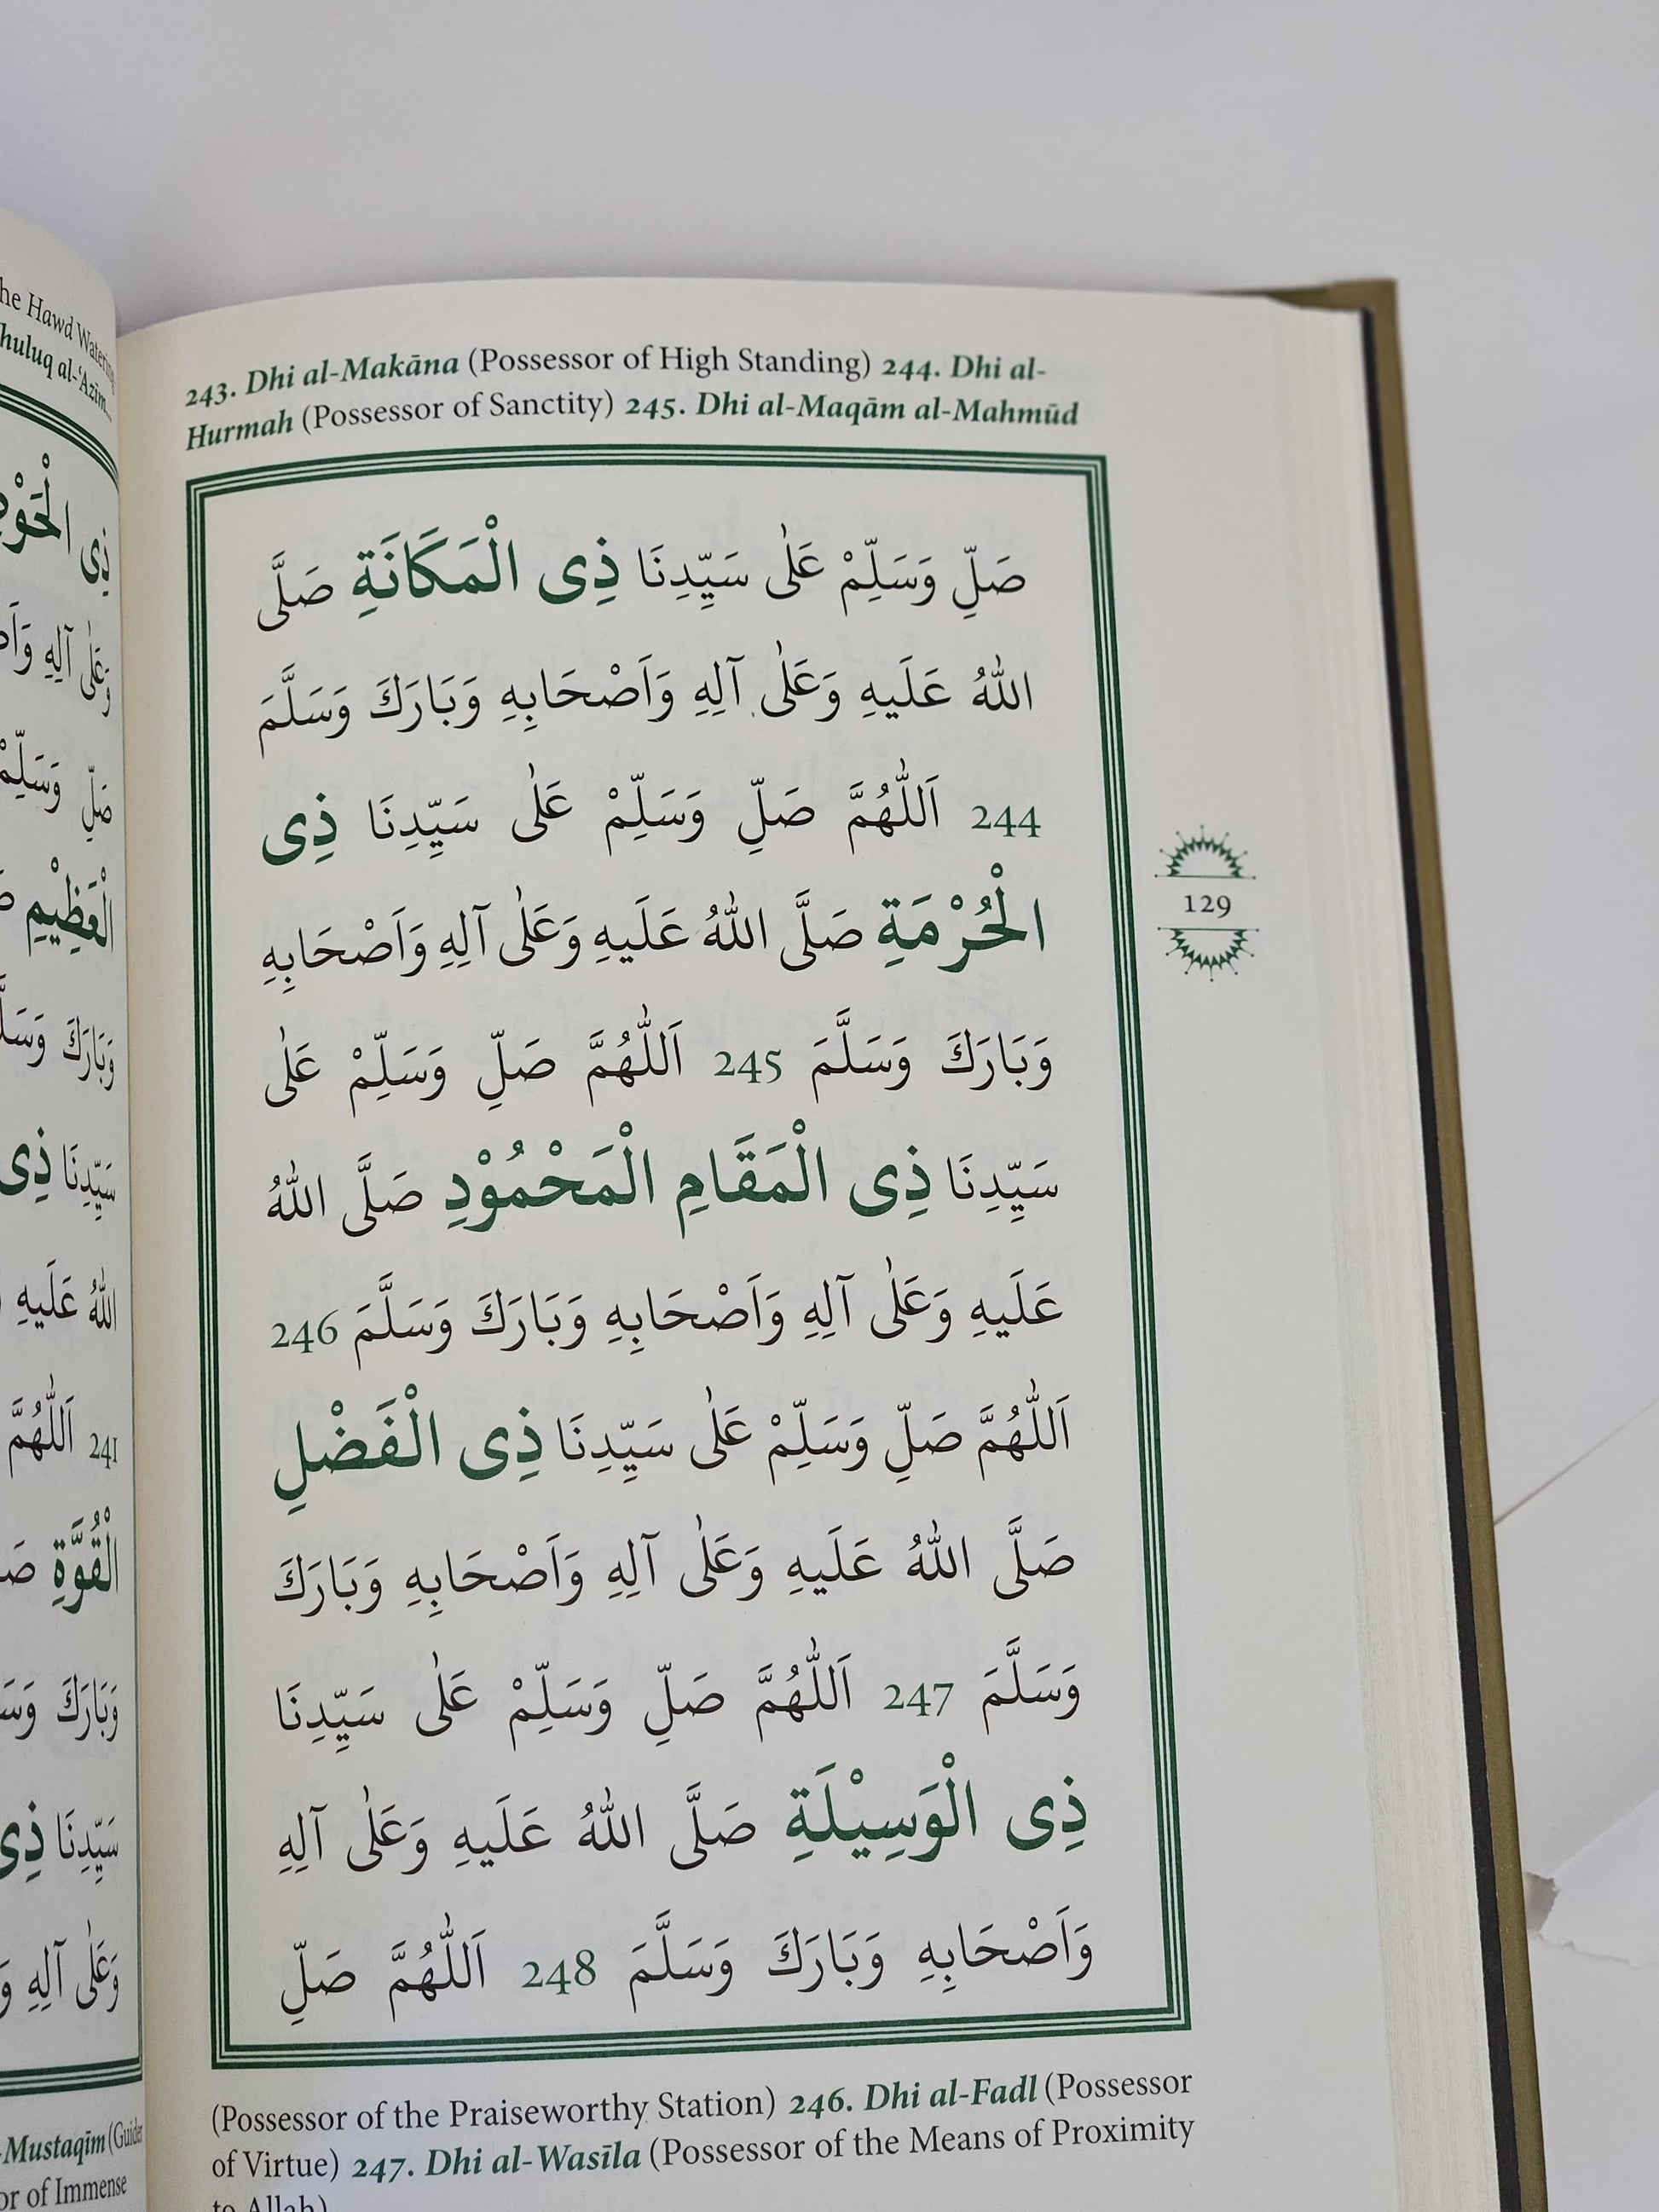 he Hawd
huluq al-'Azīm
ذِى الْحَوْضِ
وَعَلٰى آلِهِ
صَلِّ وَسَلِّمْ
الْعَظِيْمِ
وَبَارَكَ
سَيِّدِنَا ذِى
اللهُ عَلَيهِ
241 اَللّٰهُمَّ
الْقُوَّةِ
وَبَارَكَ
سَيِّدِنَا ذِى
وَعَلٰى آلِهِ
-Mustaqīm (Guider
or of Immense
243. Dhi al-Makāna (Possessor of High Standing) 244. Dhi al-
Hurmah (Possessor of Sanctity) 245. Dhi al-Maqām al-Mahmūd
صَلِّ وَسَلِّمْ عَلٰى سَيِّدِنَا ذِى الْمَكَانَةِ صَلَّى
اللهُ عَلَيهِ وَعَلٰى آلِهِ وَاَصْحَابِهِ وَبَارَكَ وَسَلَّمَ
244 اَللّٰهُمَّ صَلِّ وَسَلِّمْ عَلٰى سَيِّدِنَا ذِى
الْحُرْمَةِ صَلَّى اللهُ عَلَيهِ وَعَلٰى آلِهِ وَاَصْحَابِهِ
وَبَارَكَ وَسَلَّمَ 245 اَللّٰهُمَّ صَلِّ وَسَلِّمْ عَلٰى
سَيِّدِنَا ذِى الْمَقَامِ الْمَحْمُوْدِ صَلَّى اللهُ
عَلَيهِ وَعَلٰى آلِهِ وَاَصْحَابِهِ وَبَارَكَ وَسَلَّمَ 246
اَللّٰهُمَّ صَلِّ وَسَلِّمْ عَلٰى سَيِّدِنَا ذِى الْفَضْلِ
صَلَّى اللهُ عَلَيهِ وَعَلٰى آلِهِ وَاَصْحَابِهِ وَبَارَكَ
وَسَلَّمَ 247 اَللّٰهُمَّ صَلِّ وَسَلِّمْ عَلٰى سَيِّدِنَا
ذِى الْوَسِيْلَةِ صَلَّى اللهُ عَلَيهِ وَعَلٰى آلِهِ
وَاَصْحَابِهِ وَبَارَكَ وَسَلَّمَ 248 اَللّٰهُمَّ صَلِّ
129
(Possessor of the Praiseworthy Station) 246. Dhi al-Fadl (Possessor
of Virtue) 247. Dhi al-Wasīla (Possessor of the Means of Proximity
to Allah)